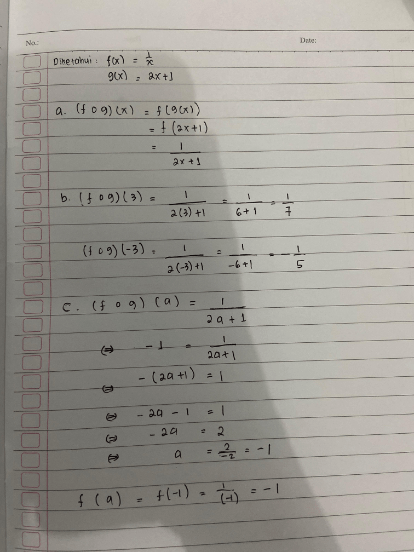 No.: Date:
Diketahui : f(x) = 1/x
g(x) = 2x+1
a. (f o g)(x) = f(g(x))
= f(2x+1)
= 1/(2x+1)
b. (f o g)(3) = 1/(2(3)+1) = 1/(6+1) = 1/7
(f o g)(-3) = 1/(2(-3)+1) = 1/(-6+1) = -1/5
c. (f o g)(a) = 1/(2a+1)
⇔ -1 = 1/(2a+1)
⇔ -(2a+1) = 1
⇔ -2a - 1 = 1
⇔ -2a = 2
⇔ a = 2/-2 = -1
f(a) = f(-1) = 1/(-1) = -1